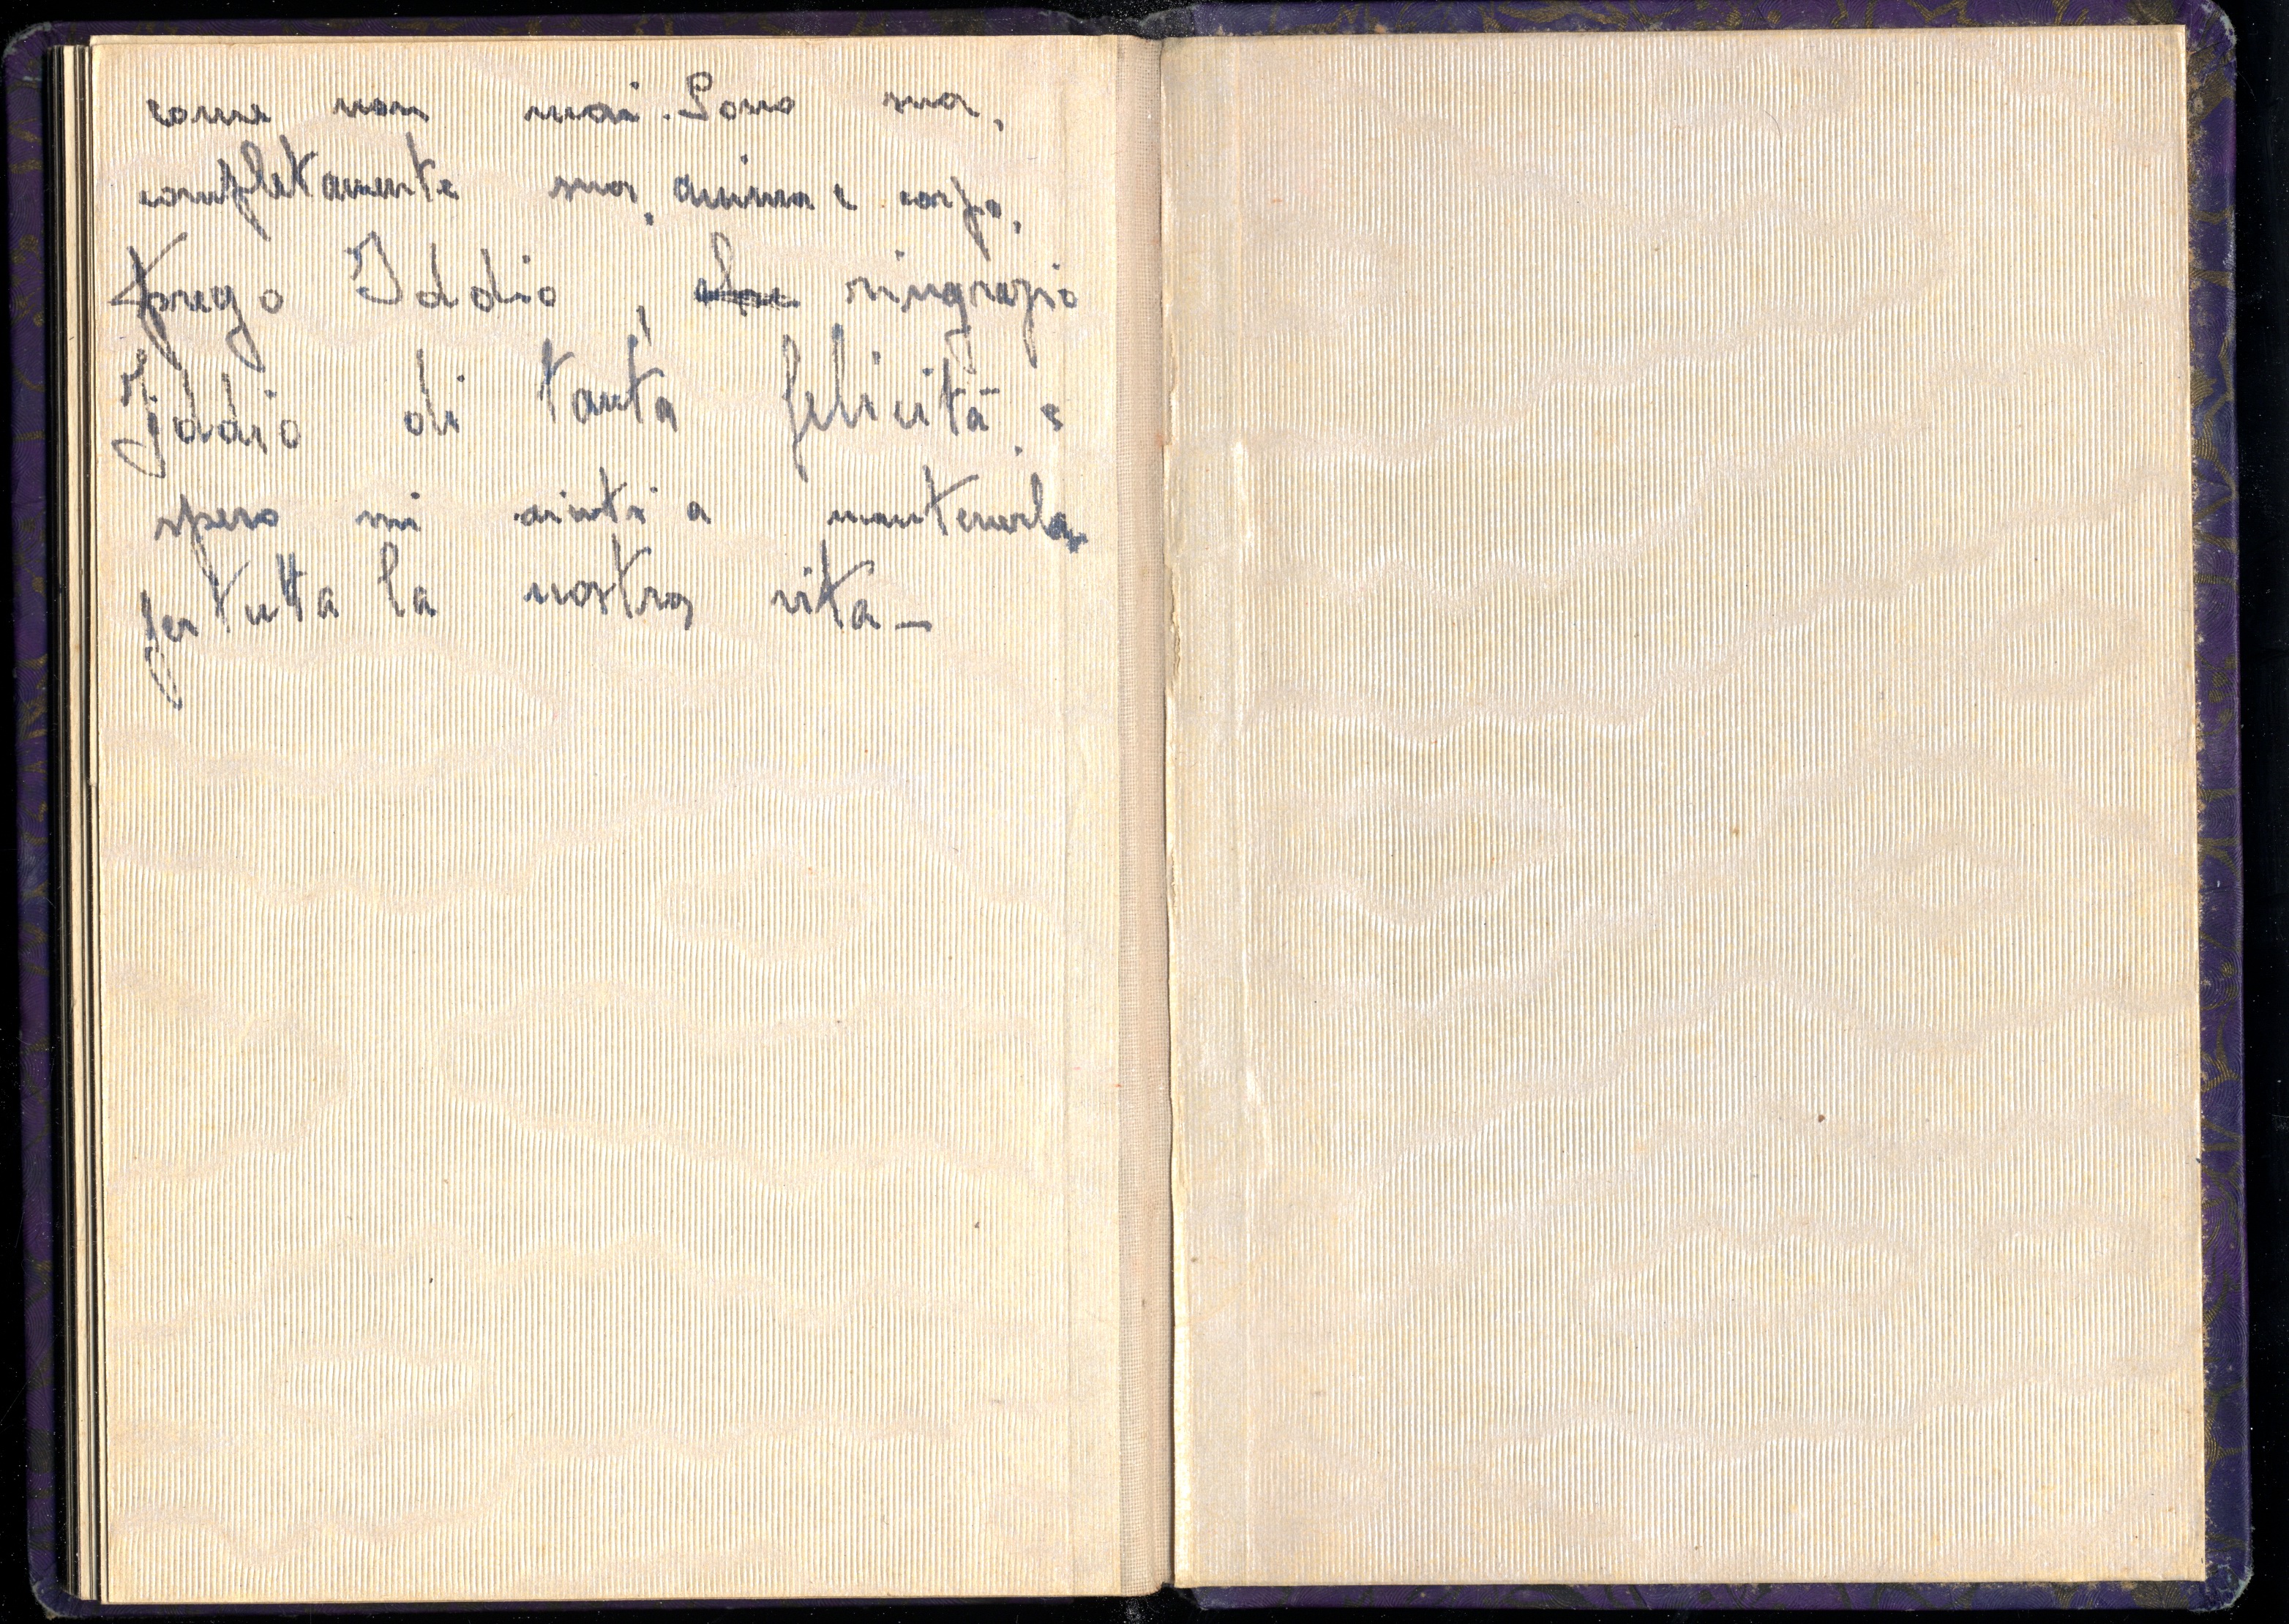 come non mai. Sono sua,
completamente sua, anima e corpo,
prego Iddio, che ringrazio
Iddio di tanta felicità, e
spero mi aiuti a mantenerla
per tutta la nostra vita_